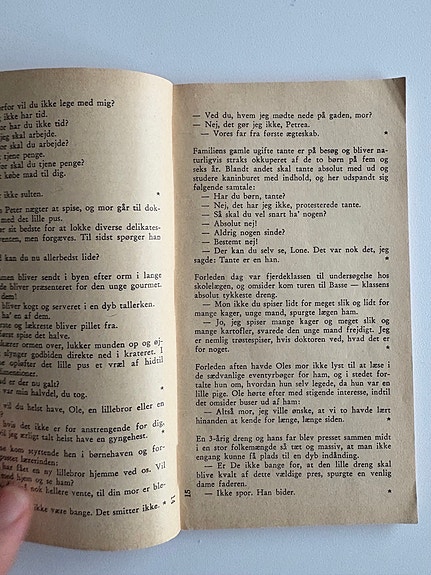 rfor vil du ikke lege med mig?
ikke har tid.
or har du ikke tid?
jeg skal arbejde.
for skal du arbejde?
tjene penge.
skal du tjene penge?
købe mad til dig.
ikke sulten. *
Peter nægter at spise, og mor går til dok-
med det lille pus.
sit bedste for at lokke diverse delikates-
venten, men forgæves. Til sidst spørger han
kan du nu allerbedst lide?
men bliver sendt i byen efter orm i lange
bliver præsenteret for den unge gourmet.
dem!
bliver kogt og serveret i en dyb tallerken.
ha' en af dem.
og lækreste bliver pillet fra.
spise det halve.
ormen over, lukker munden op og øj-
slynger godbiden direkte ned i krateret. I
opløfter det lille pus et vræl af hidtil
dimensioner.
er der nu galt?
var min halvdel, du tog. *
vil du helst have, Ole, en lillebror eller en
hvis det ikke er for anstrengende for dig,
jeg ærligt talt helst have en gyngehest. *
kom styrtende hen i børnehaven og for-
lærerinden:
har fået en ny lillebror hjemme ved os. Vil
med hjem og se ham?
nok hellere vente, til din mor er ble-
ikke være bange. Det smitter ikke. *
14
— Ved du, hvem jeg mødte nede på gaden, mor?
— Nej, det gør jeg ikke, Petrea.
— Vores far fra første ægteskab. *
Familiens gamle ugifte tante er på besøg og bliver na-
turligvis straks okkuperet af de to børn på fem og
seks år. Blandt andet skal tante absolut med ud og
studere kaninburet med indhold, og her udspandt sig
følgende samtale:
— Har du børn, tante?
— Nej, det har jeg ikke, protesterede tante.
— Så skal du vel snart ha' nogen?
— Absolut nej!
— Aldrig nogen sinde?
— Bestemt nej!
— Der kan du selv se, Lone. Det var nok det, jeg
sagde: Tante er en han. *
Forleden dag var fjerdeklassen til undersøgelse hos
skolelægen, og omsider kom turen til Basse — klassens
absolut tykkeste dreng.
— Mon ikke du spiser lidt for meget slik og lidt for
mange kager, unge mand, spurgte lægen ham.
— Jo, jeg spiser mange kager og meget slik og
mange kartofler, svarede den unge mand frejdigt. Jeg
er nemlig trøstespiser, hvis doktoren ved, hvad det er
for noget. *
Forleden aften havde Oles mor ikke lyst til at læse i
de sædvanlige eventyrbøger for ham, og i stedet for-
talte hun om, hvordan hun selv legede, da hun var en
lille pige. Ole hørte efter med stigende interesse, indtil
det omsider buser ud af ham:
— Altså mor, jeg ville ønske, at vi to havde lært
hinanden at kende for længe, længe siden. *
En 3-årig dreng og hans far blev presset sammen midt
i en stor folkemængde så tæt og massiv, at man ikke
engang kunne få plads til en dyb indånding.
— Er De ikke bange for, at den lille dreng skal
blive kvalt af dette vældige pres, spurgte en venlig
dame faderen.
— Ikke spor. Han bider. *
15